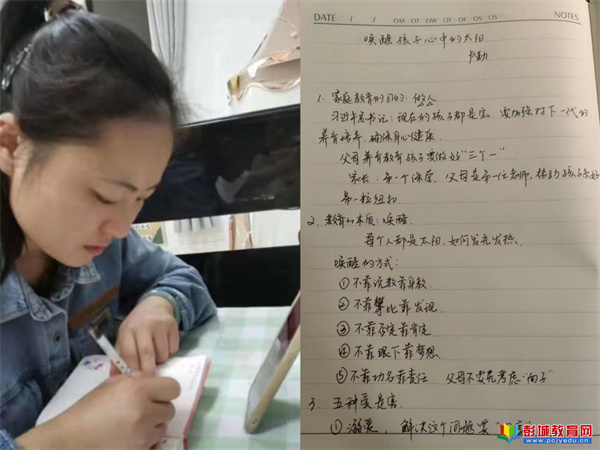 DATE / /
NOTES
唤醒孩子心中的太阳
卢勤
1. 家庭教育的目的: 做人
习近平总书记: 现在的孩子都是宝, 要加强对下一代的
养育培养, 确保身心健康.
父母养育教育孩子要做好"三个一"
家长: 第一个课堂, 父母是第一任老师, 帮助孩子系好
第一粒纽扣
2. 教育的本质: 唤醒.
每个人都是太阳, 如何发光发热.
唤醒的方式:
① 不靠说教靠身教
② 不靠攀比靠发现
③ 不靠否定靠肯定
④ 不靠眼下靠梦想
⑤ 不靠功名靠责任 父母不要先考虑"面子"
3. 五种爱是害.
① 溺爱, 解决这个问题要
彭城教育网
www.pcjyedu.cn